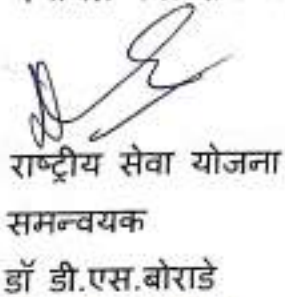 राष्ट्रीय सेवा योजना
समन्वयक
डॉ डी.एस.बोराडे